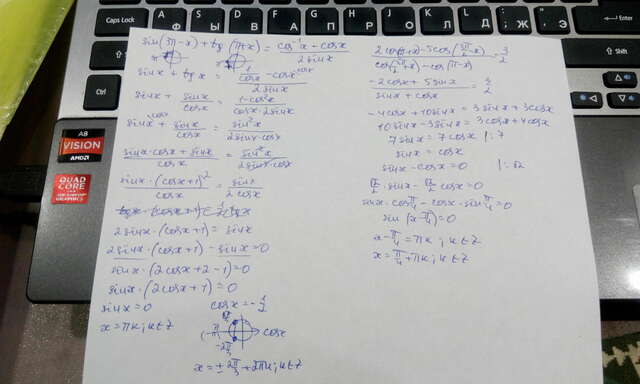 Caps Lock
Shift
Ctrl
Enter
Shift
Ctrl
A8
VISION
AMD
QUAD
CORE
sin(3π-x)+tg(π+x)=cos⁻¹x-cosx/2sinx
sinx+tgx=1/cosx-cosx/2sinx
sinx+sinx/cosx=1-cos²x/cosx·2sinx
sinx+sinx/cosx=sin²x/2sinx·cosx
sinx·cosx+sinx/cosx=sin²x/2sinx·cosx
sinx·(cosx+1)/cosx=sinx/2cosx
2sinx·(cosx+1)=sinx
2sinx·(cosx+1)-sinx=0
sinx·(2cosx+2-1)=0
sinx·(2cosx+1)=0
sinx=0 cosx=-1/2
x=πk; k∈Z
cosx
x=±2π/3+2πk; k∈Z
-2cosx+5sinx/sinx+cosx=3/2
-4cosx+10sinx=3sinx+3cosx
10sinx-3sinx=3cosx+4cosx
7sinx=7cosx |:7
sinx=cosx
sinx-cosx=0 |:√2
√2/2·sinx-√2/2cosx=0
sinx·cosπ/4-cosx·sinπ/4=0
sin(x-π/4)=0
x-π/4=πk; k∈Z
x=π/4+πk; k∈Z